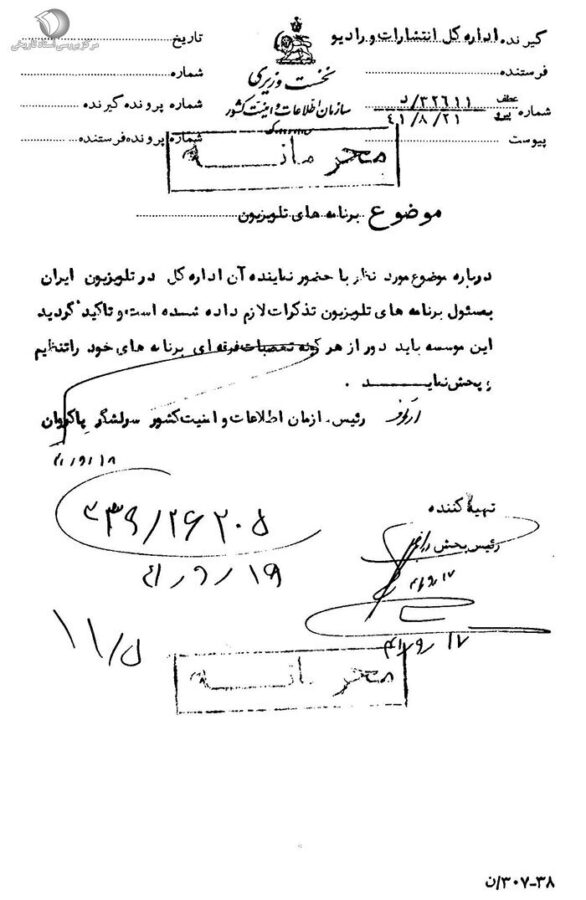 مرکز بررسی اسناد تاریخی
گیرنده اداره کل انتشارات و رادیو
فرستنده
شماره عطف پیرو ۳۲۶۱۱/د
۴۱/۸/۲۱
پیوست
نخست وزیری
سازمان اطلاعات و امنیت کشور
تاریخ
شماره
شماره پرونده گیرنده
شماره پرونده فرستنده
محرمانه
موضوع برنامه های تلویزیون
درباره موضوع مورد نظر با حضور نماینده آن اداره کل در تلویزیون ایران
بمسئول برنامه های تلویزیون تذکرات لازم داده شده است و تاکید گردید
این موسسه باید دور از هر گونه تعصبات فرقه ای برنامه های خود را تنظیم
و پخش نماید .
رئیس سازمان اطلاعات و امنیت کشور سرلشگر پاکروان
۴۱/۹/۱۸
تهیه کننده
رئیس بخش
۴۱/۹/۱۷
۴۱/۹/۱۹
۴۱/۹/۱۷
۱۱/۵
محرمانه
۳۸-۳۰۷/ن